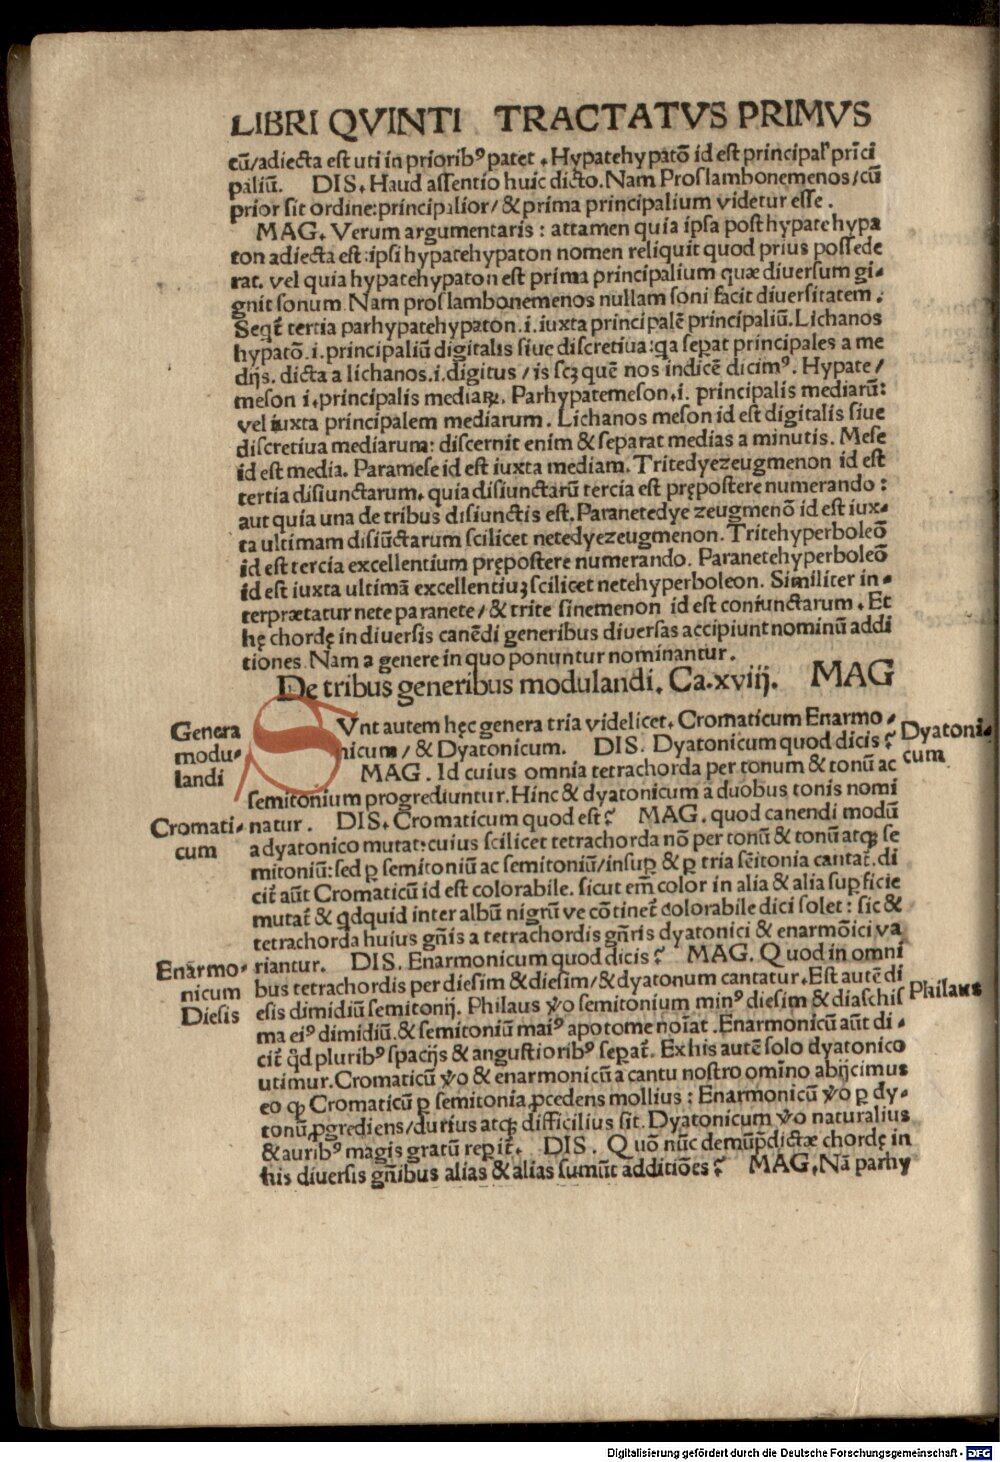 LIBRI QVINTI TRACTATVS PRIMVS
cū/adiecta est uti in priorib⁹ patet. Hypatehypatō id est principal' prīci
paliū. DIS. Haud assentio huic dicto. Nam Proslambonemenos/cū
prior sit ordine: principalior/ & prima principalium videtur esse.
MAG. Verum argumentaris: attamen quia ipsa post hypatehypa
ton adiecta est: ipsi hypatehypaton nomen reliquit quod prius possede
rat. vel quia hypatehypaton est prima principalium quæ diuersum gi-
gnit sonum. Nam proslambonemenos nullam soni facit diuersitatem.
Seqt̄ tertia parhypatehypaton. i. iuxta principalē principaliū. Lichanos
hypatō. i. principaliū digitalis siue discretiua: qa sepat principales a me
dijs. dicta a lichanos. i. digitus/ is scꝫ quē nos indicē dicim⁹. Hypate/
meson i. principalis mediaꝝ. Parhypatemeson. i. principalis mediarū:
vel iuxta principalem mediarum. Lichanos meson id est digitalis siue
discretiua mediarum: discernit enim & separat medias a minutis. Mese
id est media. Paramese id est iuxta mediam. Tritedyezeugmenon id est
tertia disiunctarum. quia disiunctarū tercia est prępostere numerando:
aut quia una de tribus disiunctis est. Paranetedyezeugmenō id est iux-
ta ultimam disiūctarum scilicet netedyezeugmenon. Tritehyperboleō
id est tercia excellentium prępostere numerando. Paranetehyperboleō
id est iuxta ultimā excellentiuꝫ scilicet netehyperboleon. Similiter in-
terprætatur nete paranete/ & trite sinemenon id est coniunctarum. Et
hę chordę in diuersis canēdi generibus diuersas accipiunt nominū addi
tiones. Nam a genere in quo ponuntur nominantur.
De tribus generibus modulandi. Ca. xviij. MAG
Genera
modu-
landi
SVnt autem hęc genera tria videlicet. Cromaticum Enarmo-
nicum/ & Dyatonicum. DIS. Dyatonicum quod dicis?
Dyatoni-
cum
MAG. Id cuius omnia tetrachorda per tonum & tonū ac
semitonium progrediuntur. Hinc & dyatonicum a duobus tonis nomi
Cromati-
cum
natur. DIS. Cromaticum quod est? MAG. quod canendi modū
a dyatonico mutat: cuius scilicet tetrachorda nō per tonū & tonū atqꝫ se
mitoniū: sed ꝑ semitoniū ac semitoniū/ insuꝑ & ꝑ tria sēitonia cantat̄. di
cit̄ aūt Cromaticū id est colorabile. sicut em̄ color in alia & alia suꝑficie
mutat̄ & qdquid inter albū nigrū ve cōtinet̄ colorabile dici solet: sic &
tetrachorda huius gn̄is a tetrachordis gn̄ris dyatonici & enarmōici va
Enarmo-
nicum
Diesis
riantur. DIS. Enarmonicum quod dicis? MAG. Quod in omni
bus tetrachordis per diesim & diesim/ & dyatonum cantatur. Est autē di
esis dimidiū semitonij. Philaus ṽo semitonium min⁹ diesim & diaschis
Philaus
ma ei⁹ dimidiū. & semitoniū mai⁹ apotome noīat. Enarmonicū aūt di-
cit̄ qd̄ plurib⁹ spacijs & angustiorib⁹ sepat̄. Ex his autē solo dyatonico
utimur. Cromaticū ṽo & enarmonicū a cantu nostro omīno abijcimus
eo qꝫ Cromaticū ꝑ semitonia ꝓcedens mollius: Enarmonicū ṽo ꝑ dy-
tonū ꝓgrediens/ durius atqꝫ difficilius sit. Dyatonicum ṽo naturalius
& aurib⁹ magis gratū repit̄. DIS. Quō nūc demū p̄dictæ chordę in
his diuersis gn̄ibus alias & alias sumūt additiōes? MAG. Nā parhy
Digitalisierung gefördert durch die Deutsche Forschungsgemeinschaft - DFG